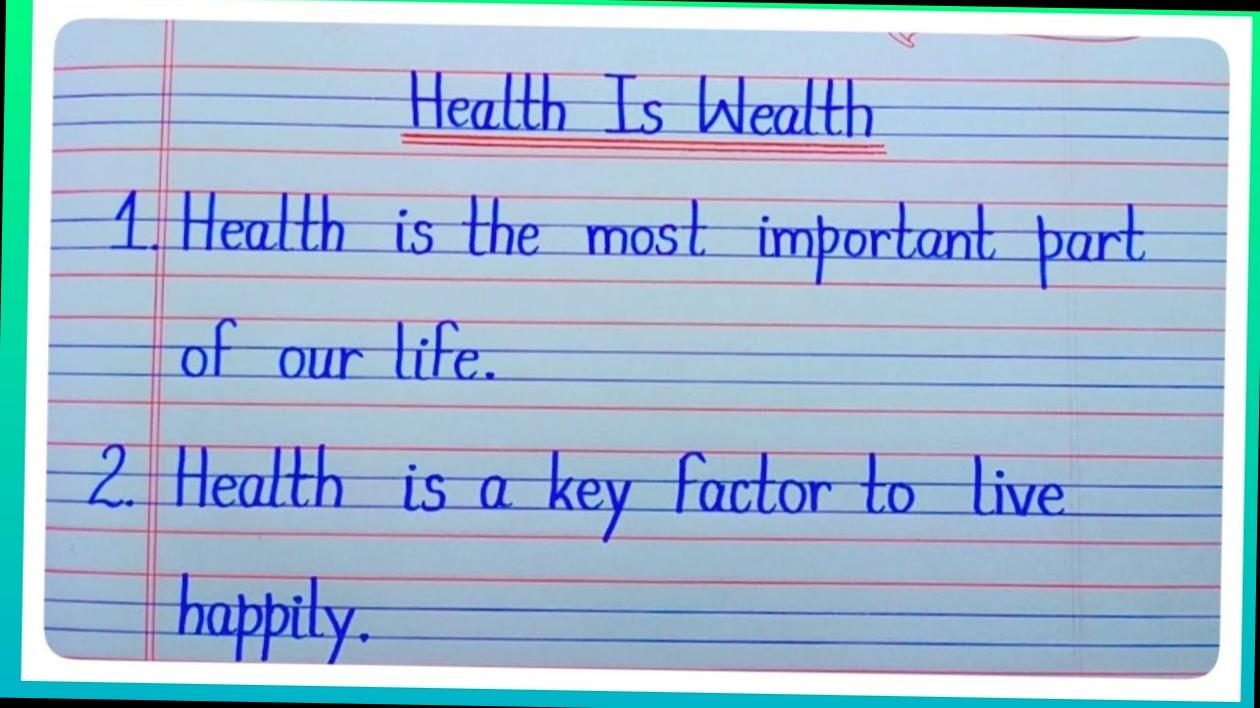 Health Is Wealth
1. Health is the most important part
of our life.
2. Health is a key factor to live
happily.